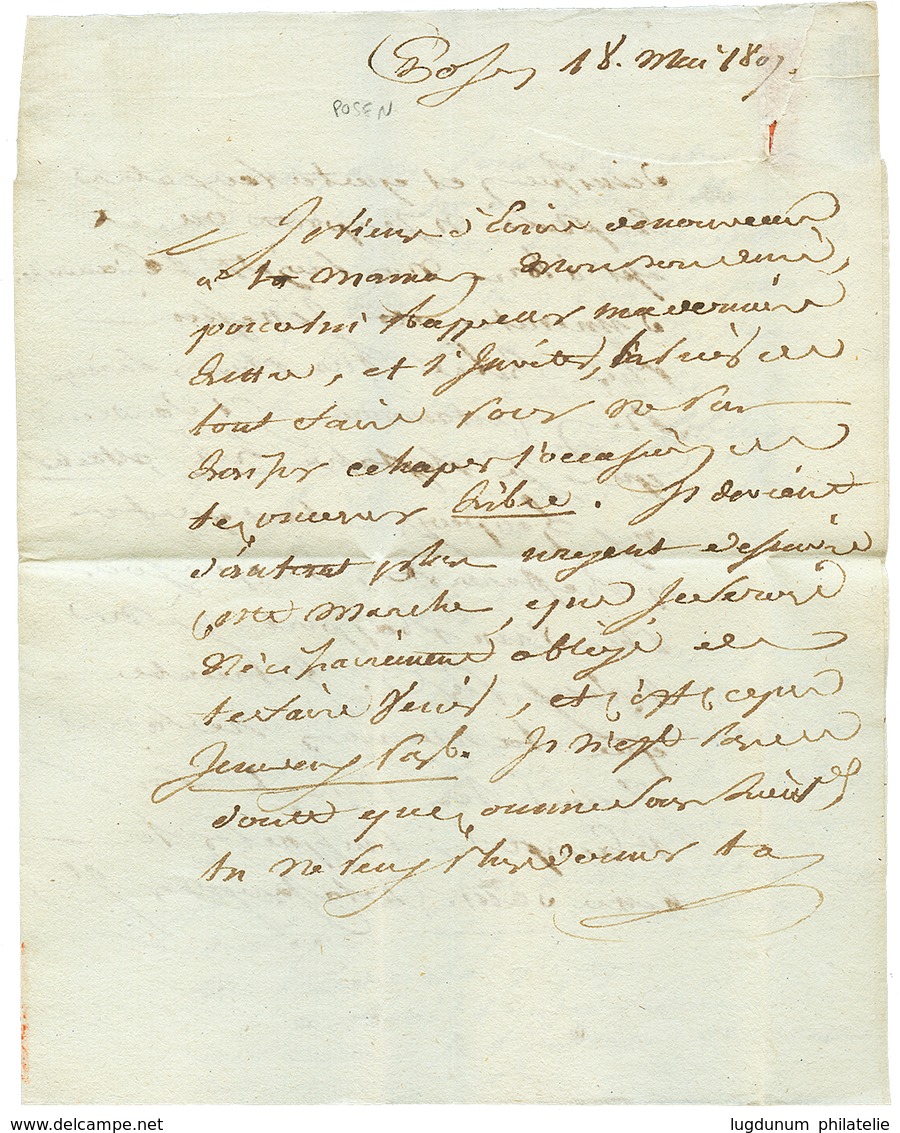 Posen 18. Mai 1807.
POSEN
Je viens d'Ecrire de nouveau
a ta maman, Mon bon Aimé,
pour lui rappeller ma derniere
Lettre, et l'Inviter, à de
tout faire pour ne pas
Laisser echaper l'occasion de
te conserver Libre. Il devient
d'autant plus urgent de faire
cette Marche, que Je serai
Nécessairement obligé de
te faire Venir, et c'est ce que
Je ne veux pas. Il n'est pas de
doute que comme
tu ne peux plus donner ta
www.delcampe.net
lugdunum philatelie